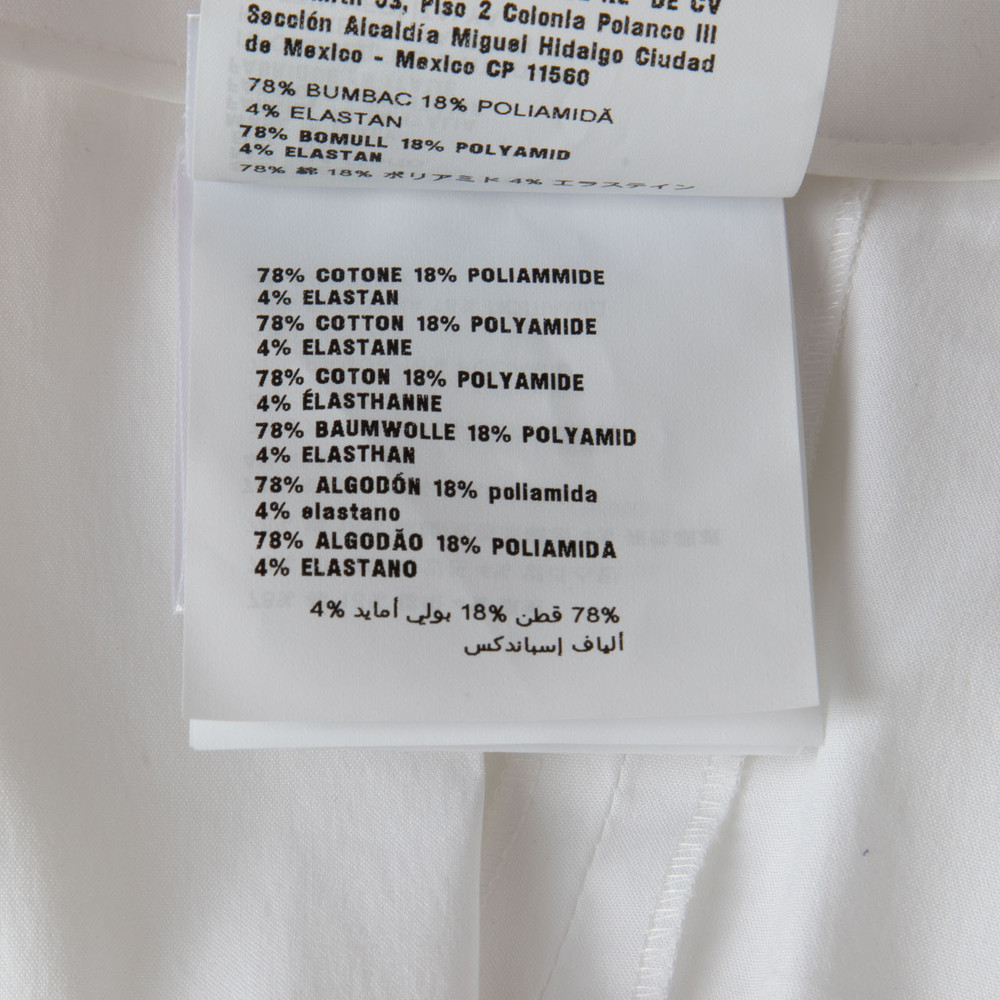 Piso 2 Colonia Polanco III
Sección Alcaldía Miguel Hidalgo Ciudad
de Mexico - Mexico CP 11560
78% BUMBAC 18% POLIAMIDĂ
4% ELASTAN
78% BOMULL 18% POLYAMID
4% ELASTAN
78% 綿 18% ポリアミド 4% エラステイン
78% COTONE 18% POLIAMMIDE
4% ELASTAN
78% COTTON 18% POLYAMIDE
4% ELASTANE
78% COTON 18% POLYAMIDE
4% ÉLASTHANNE
78% BAUMWOLLE 18% POLYAMID
4% ELASTHAN
78% ALGODÓN 18% poliamida
4% elastano
78% ALGODÃO 18% POLIAMIDA
4% ELASTANO
78% قطن 18% بولي أمايد 4%
ألياف إسباندكس